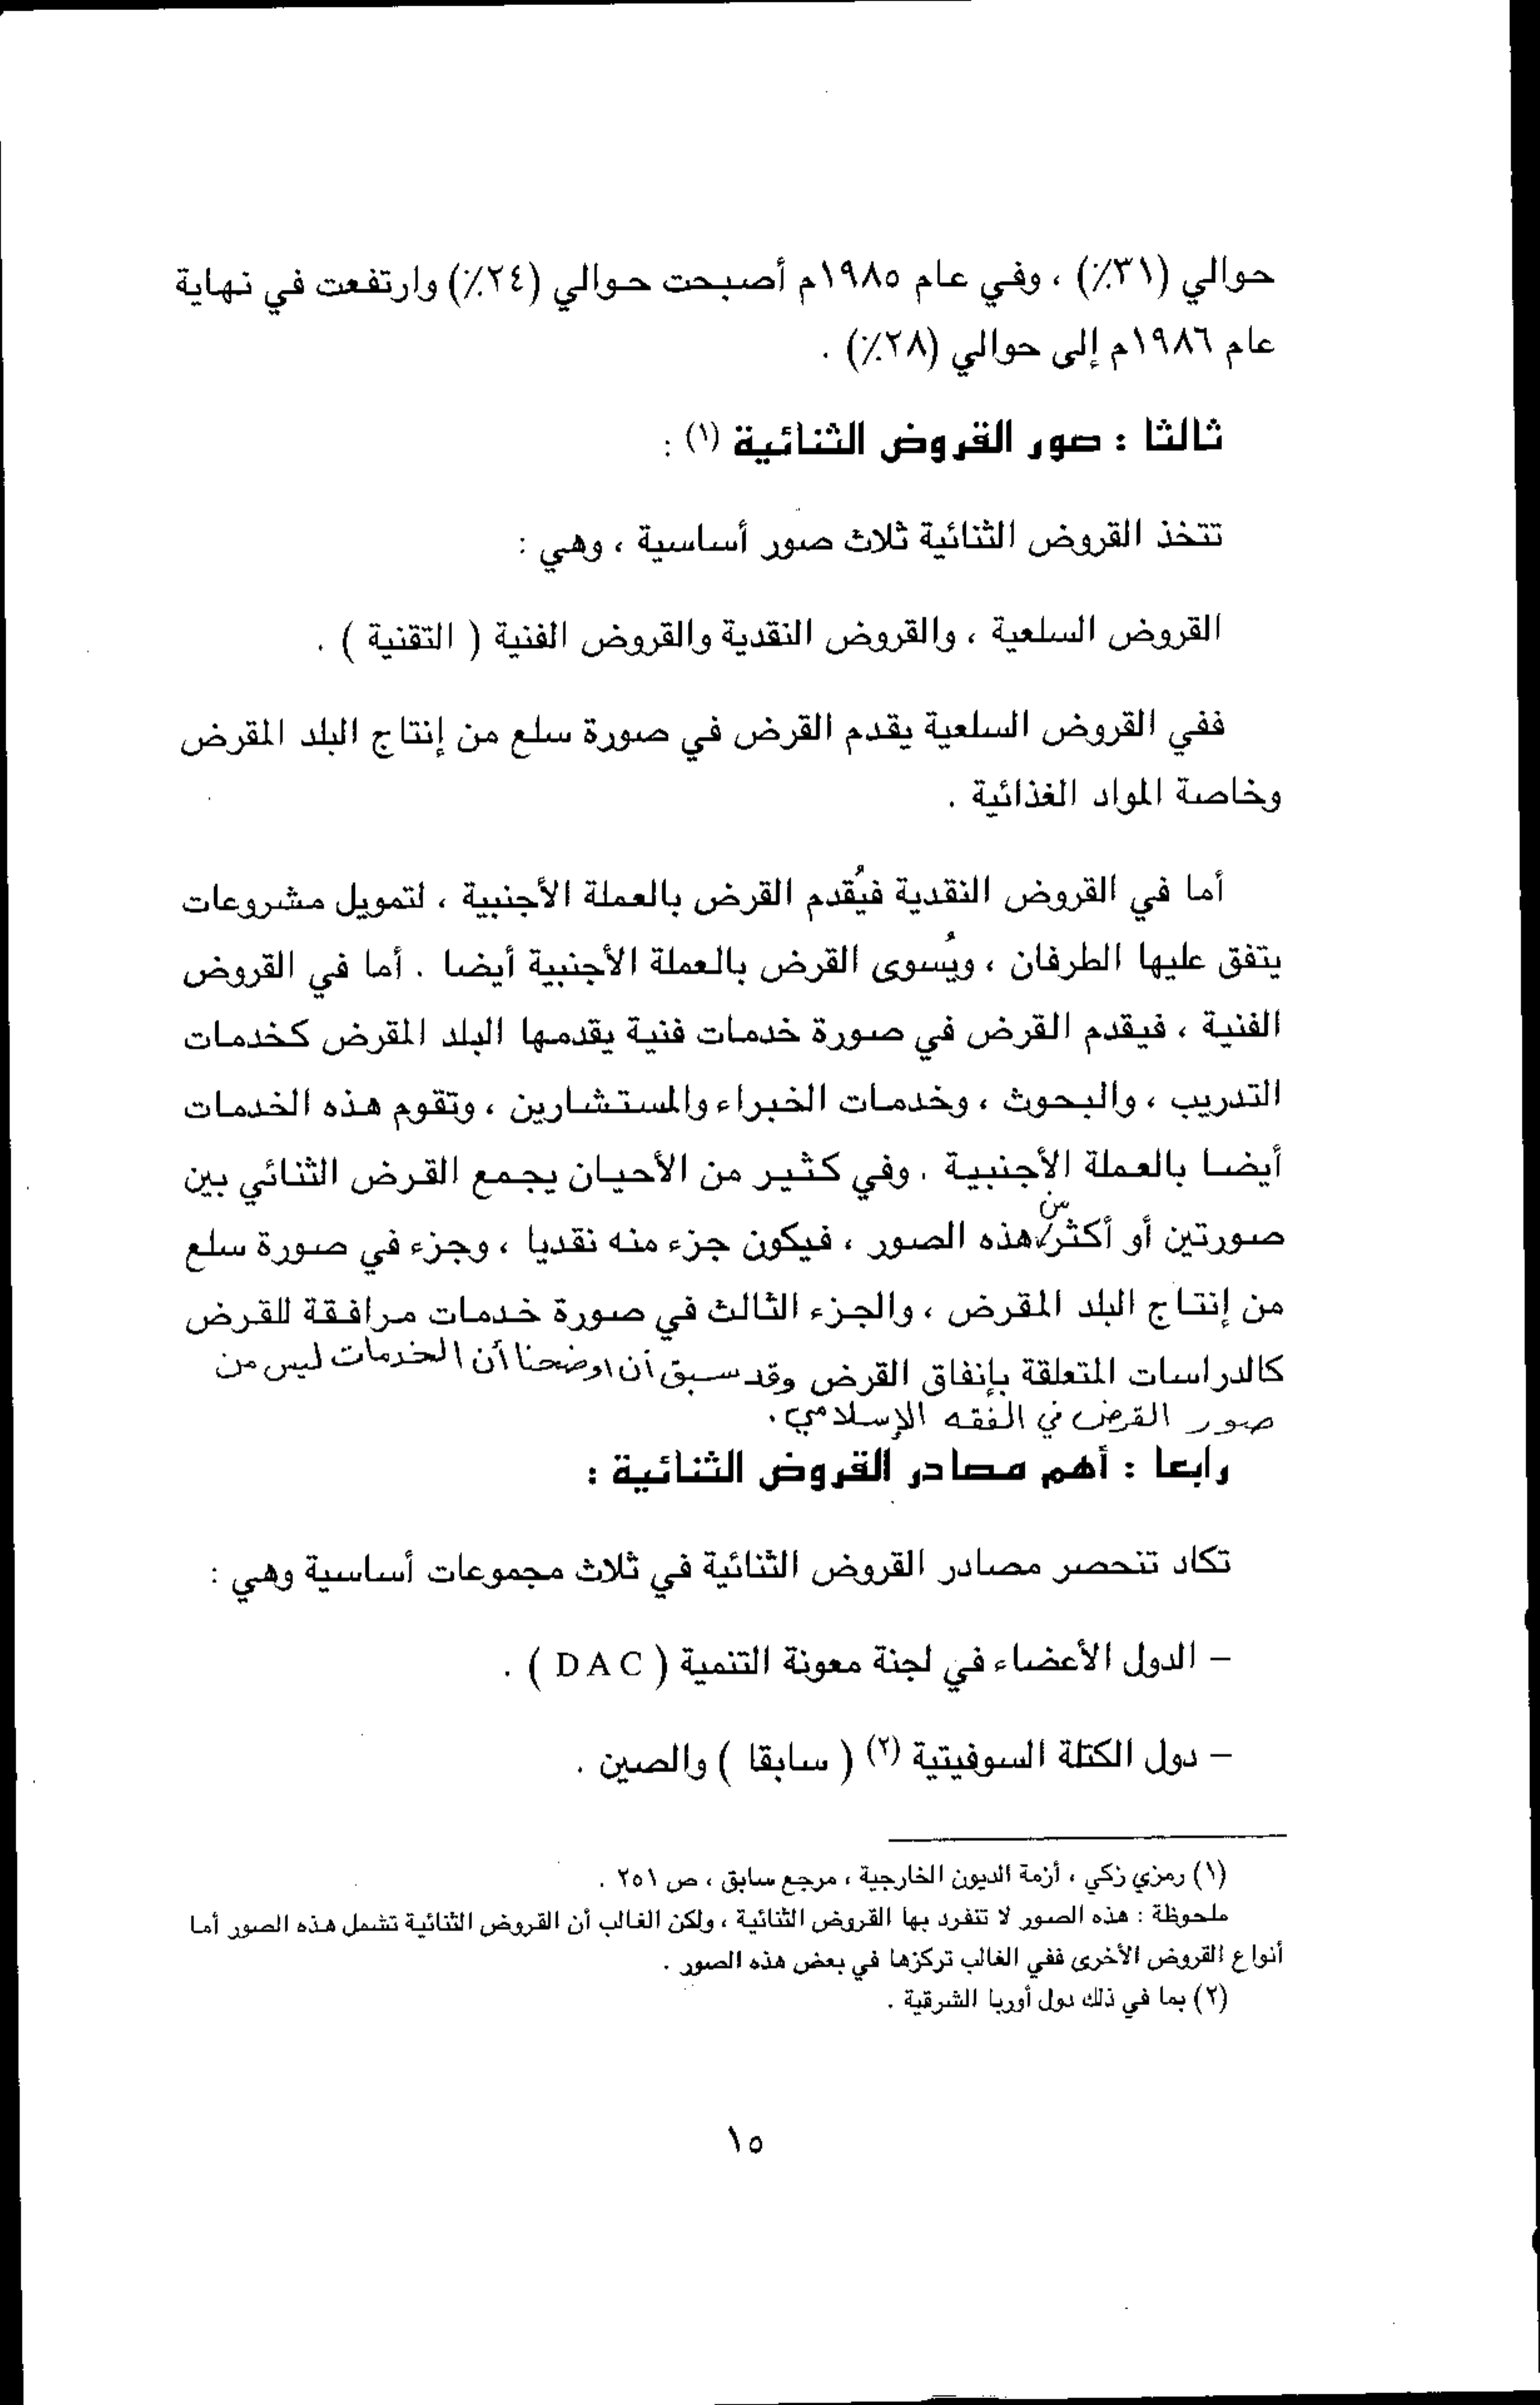 حوالي (٣١٪) ، وفي عام ١٩٨٥م أصبحت حوالي (٢٤٪) وارتفعت في نهاية
عام ١٩٨٦م إلى حوالي (٢٨٪) .
ثالثا : صور القروض الثنائية (١) :
تتخذ القروض الثنائية ثلاث صور أساسية ، وهي :
القروض السلعية ، والقروض النقدية والقروض الفنية ( التقنية ) .
ففي القروض السلعية يقدم القرض في صورة سلع من إنتاج البلد المقرض
وخاصة المواد الغذائية .
أما في القروض النقدية فيُقدم القرض بالعملة الأجنبية ، لتمويل مشروعات
يتفق عليها الطرفان ، ويُسوى القرض بالعملة الأجنبية أيضا . أما في القروض
الفنية ، فيقدم القرض في صورة خدمات فنية يقدمها البلد المقرض كخدمات
التدريب ، والبحوث ، وخدمات الخبراء والمستشارين ، وتقوم هذه الخدمات
أيضا بالعملة الأجنبية . وفي كثير من الأحيان يجمع القرض الثنائي بين
صورتين أو أكثر من هذه الصور ، فيكون جزء منه نقديا ، وجزء في صورة سلع
من إنتاج البلد المقرض ، والجزء الثالث في صورة خدمات مرافقة للقرض
كالدراسات المتعلقة بإنفاق القرض وقد سبق أن اوضحنا أن الخدمات ليس من
صور القرض في الفقه الإسلامي .
رابعا : أهم مصادر القروض الثنائية :
تكاد تنحصر مصادر القروض الثنائية في ثلاث مجموعات أساسية وهي :
– الدول الأعضاء في لجنة معونة التنمية ( DAC ) .
– دول الكتلة السوفيتية (٢) ( سابقا ) والصين .
(١) رمزي زكي ، أزمة الديون الخارجية ، مرجع سابق ، ص ٢٥١ .
ملحوظة : هذه الصور لا تنفرد بها القروض الثنائية ، ولكن الغالب أن القروض الثنائية تشمل هذه الصور أما
أنواع القروض الأخرى ففي الغالب تركزها في بعض هذه الصور .
(٢) بما في ذلك دول أوربا الشرقية .
١٥